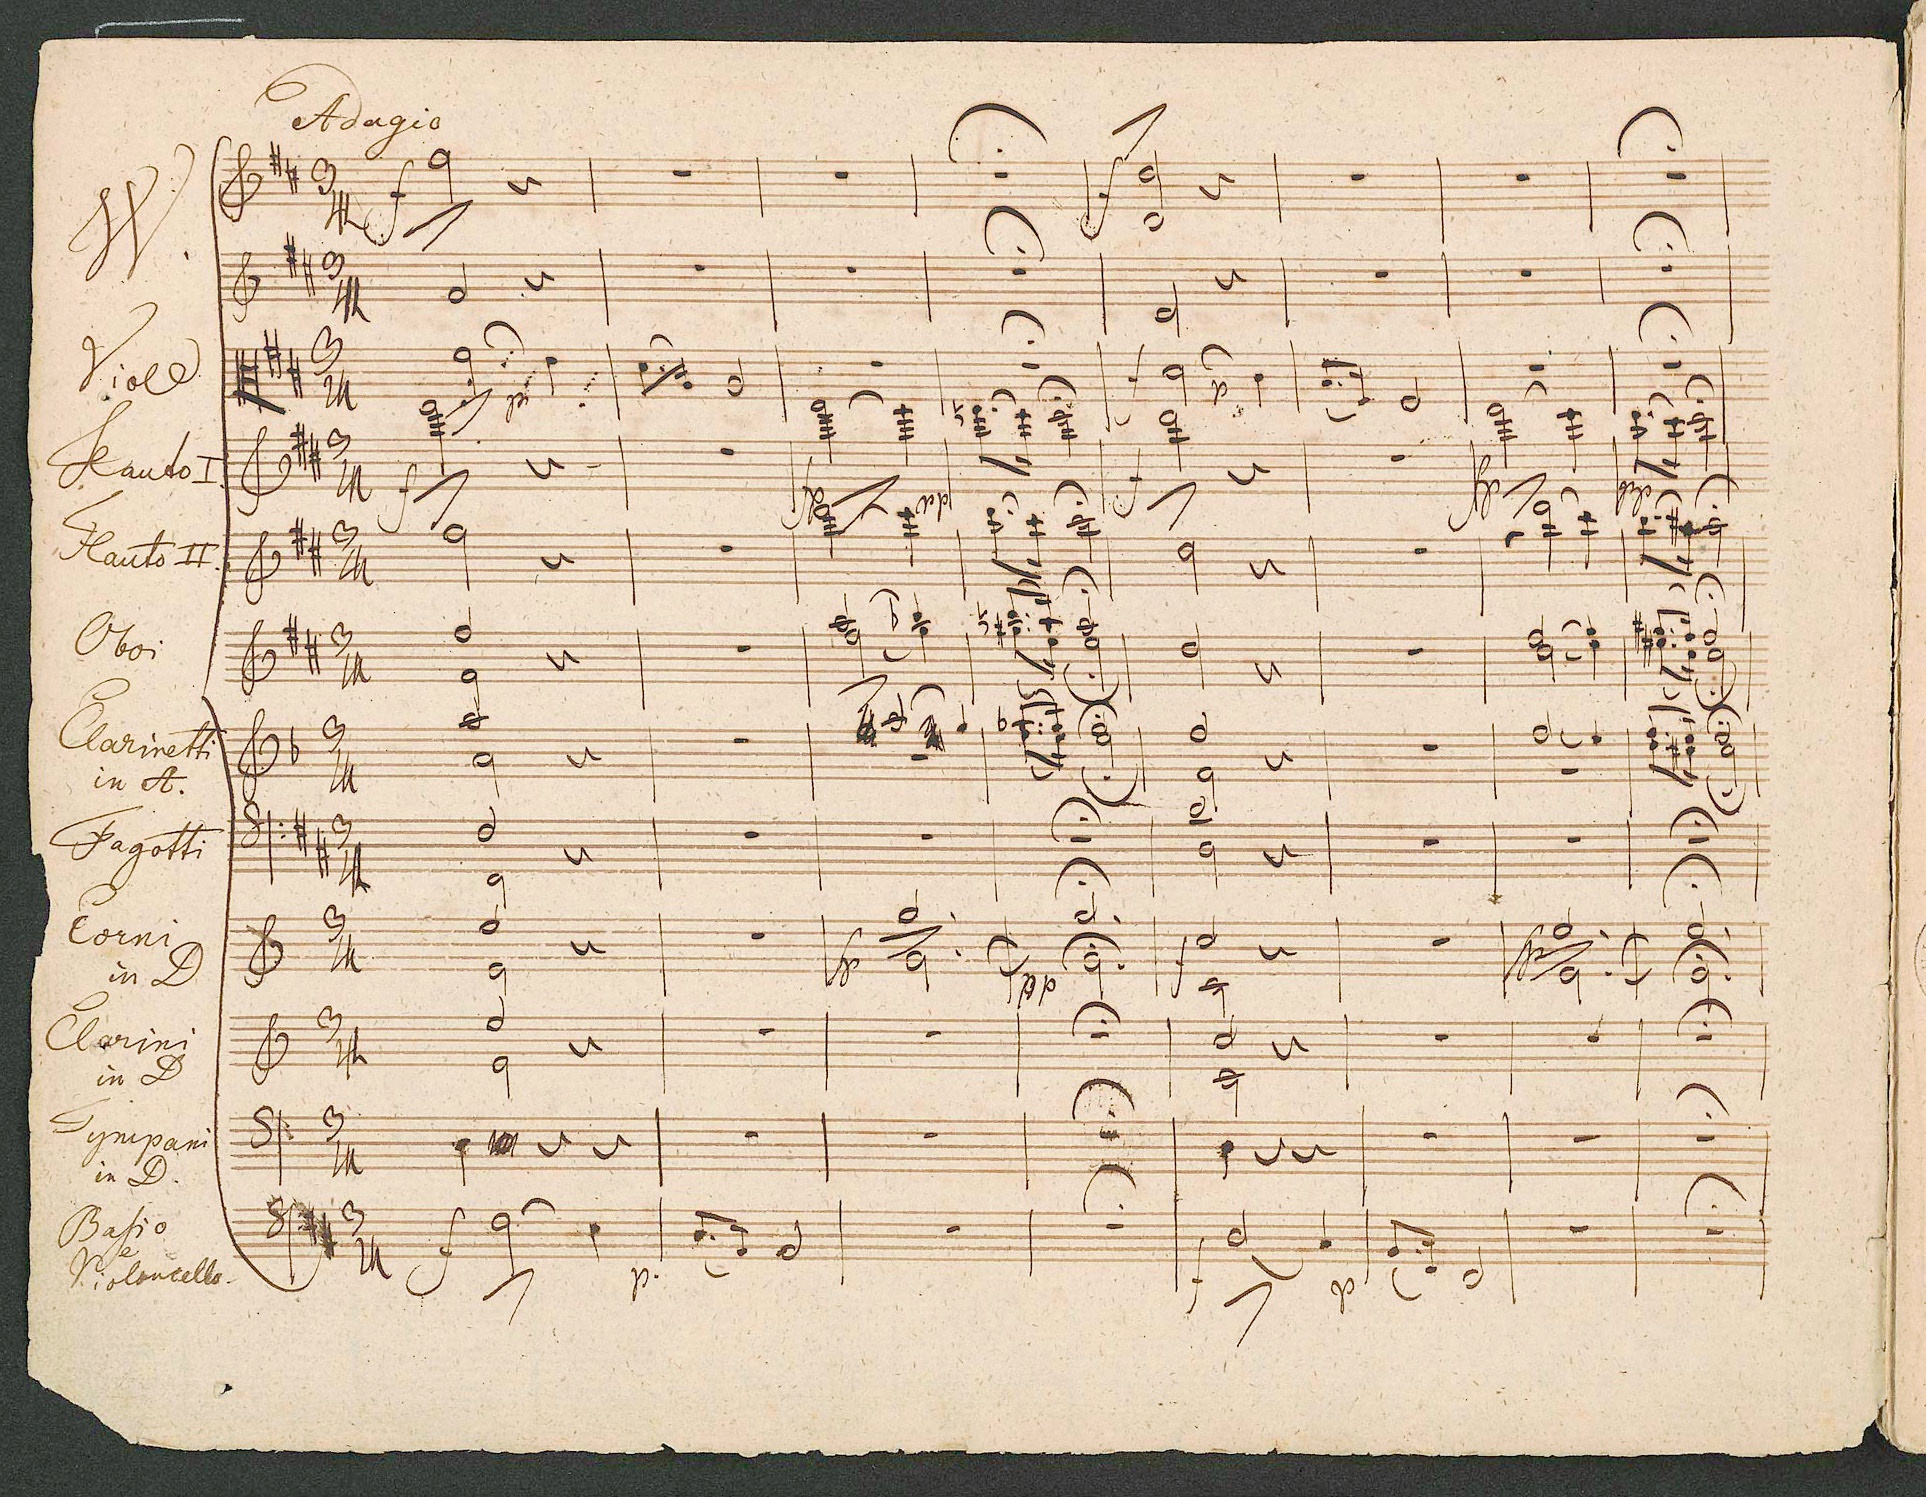 Adagio
VV.
Viole
Flauto I.
Flauto II.
Oboi
Clarinetti
in A.
Fagotti
Corni
in D
Clarini
in D
Tympani
in D.
Baſso
e
Violoncello.